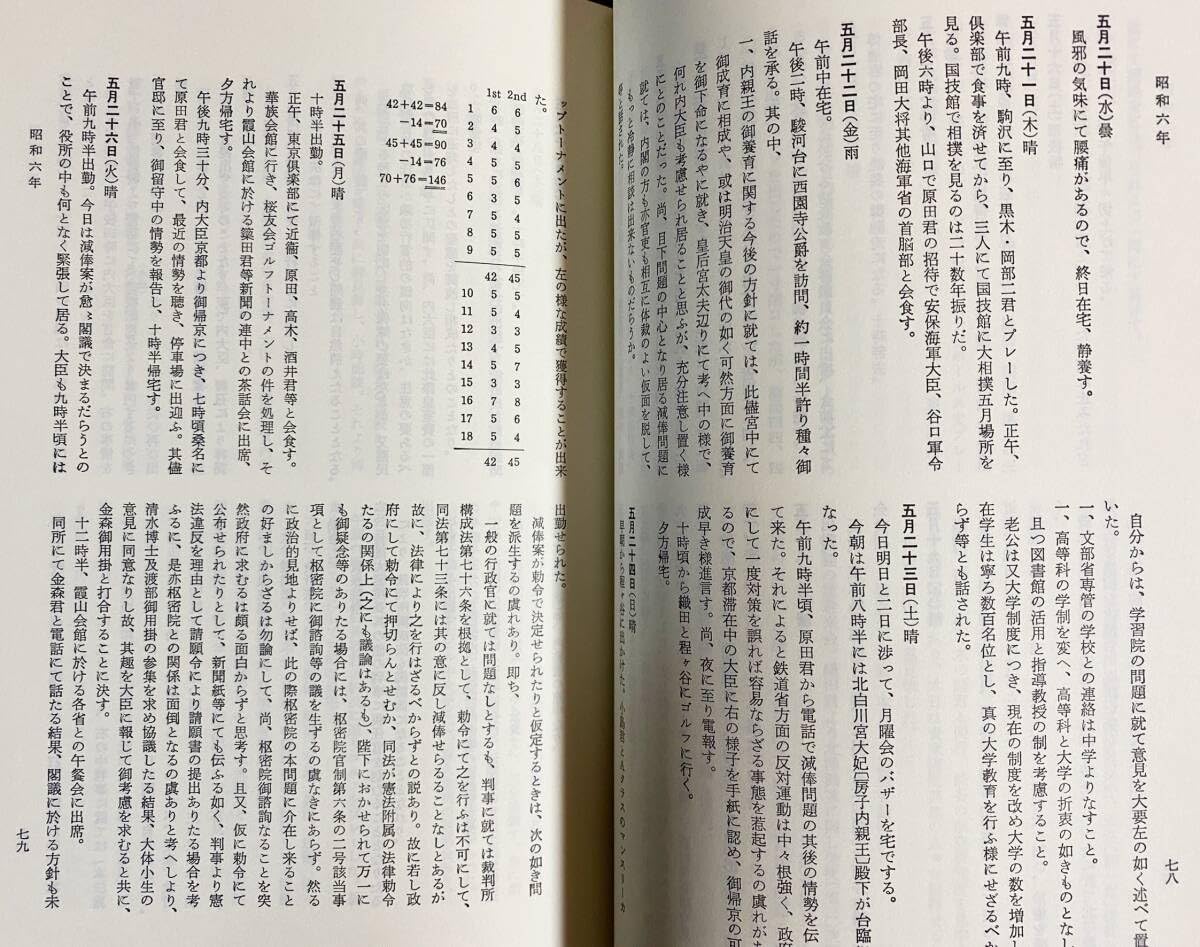 昭和六年
五月二十日(水)曇
風邪の気味にて腰痛があるので、終日在宅、静養す。
五月二十一日(木)晴
午前九時、駒沢に至り、黒木・岡部二君とプレーした。正午、
倶楽部で食事を済せてから、三人にて国技館に大相撲五月場所を
見る。国技館で相撲を見るのは二十数年振りだ。
午後六時より、山口で原田君の招待で安保海軍大臣、谷口軍令
部長、岡田大将其他海軍省の首脳部と会食す。
五月二十二日(金)雨
午前中在宅。
午後二時、駿河台に西園寺公爵を訪問、約一時間半許り種々御
話を承る。其の中、
一、内親王の御養育に関する今後の方針に就ては、此儘宮中にて
御成育に相成や、或は明治天皇の御代の如く可然方面に御養育
を御下命になるやに就き、皇后宮太夫辺りにて考へ中の様で、
何れ内大臣も考慮せられ居ることと思ふが、充分注意し置く様
にとのことだった。尚、目下問題の中心となり居る減俸問題に
就ては、内閣の方も亦官吏も相互に体裁のよい仮面を脱して、
もっと冷静に相談は出来ないものだらうか。
自分からは、学習院の問題に就て意見を大要左の如く述べて置
いた。
一、文部省専管の学校との連絡は中学よりなすこと。
一、高等科の学制を変へ、高等科と大学の折衷の如きものとなし
且つ図書館の活用と指導教授の制を考慮すること。
老公は又大学制度につき、現在の制度を改め大学の数を増加
在学生は寧ろ数百名位とし、真の大学教育を行ふ様にせざるべか
らず等とも話された。
五月二十三日(土)晴
今日明日と二日に渉って、月曜会のバザーを宅でする。
今朝は午前八時半には北白川宮大妃〔房子内親王〕殿下が台臨
なった。
午前九時半頃、原田君から電話で減俸問題の其後の情勢を伝
て来た。それによると鉄道省方面の反対運動は中々根強く、政府
にして一度対策を誤れば容易ならざる事態を惹起するの虞れがあ
るので、京都滞在中の大臣に右の様子を手紙に認め、御帰京の可
成早き様進言す。尚、夜に至り電報す。
十時頃から織田と程ヶ谷にゴルフに行く。
夕方帰宅。
五月二十四日(日)晴
七八
ップトーナメントに出たが、左の様な成績で獲得することが出来
た。
1st 2nd
1 6 6
2 4 5
3 4 4
4 5 5
5 5 6
6 3 5
7 5 4
8 5 5
9 5 5
42 45
10 5 5
11 5 4
12 3 3
13 4 5
14 5 7
15 5 3
16 3 8
17 5 6
18 5 4
42 45
42+42=84
−14=70
45+45=90
−14=76
70+76=146
五月二十五日(月)晴
十時半出勤。
正午、東京倶楽部にて近衛、原田、高木、酒井君等と会食す。
華族会館に行き、桜友会ゴルフトーナメントの件を処理し、そ
れより霞山会館に於ける簗田君等新聞の連中との茶話会に出席、
夕方帰宅す。
午後九時三十分、内大臣京都より御帰京につき、七時頃桑名に
て原田君と会食して、最近の情勢を聴き、停車場に出迎ふ。其儘
官邸に至り、御留守中の情勢を報告し、十時半帰宅す。
五月二十六日(火)晴
午前九時半出勤。今日は減俸案が愈〻閣議で決まるだらうとの
ことで、役所の中も何となく緊張して居る。大臣も九時半頃には
昭和六年
出勤せられた。
減俸案が勅令で決定せられたりと仮定するときは、次の如き問
題を派生するの虞れあり。即ち、
一般の行政官に就ては問題なしとするも、判事に就ては裁判所
構成法第七十六条を根拠として、勅令にて之を行ふは不可にして、
同法第七十三条には其の意に反し減俸せらるることなしとあるが
故に、法律により之を行はざるべからずとの説あり。故に若し政
府にして勅令にて押切らんとせむか、同法が憲法附属の法律勅令
たるの関係上(之にも議論はあるも)、陛下におかせられて万一に
も御疑念等のありたる場合には、枢密院官制第六条の二号該当事
項として枢密院に御諮詢等の議を生ずるの虞なきにあらず。然る
に政治的見地よりせば、此の際枢密院の本問題に介在し来ること
の好ましからざるは勿論にして、尚、枢密院御諮詢なることを突
然政府に求むるは頗る面白からずと思考す。且又、仮に勅令にて
公布せられたりとして、新聞紙等にても伝ふる如く、判事より憲
法違反を理由として請願令により請願書の提出ありたる場合を考
ふるに、是亦枢密院との関係は面倒となるの虞ありと考へしより、
清水博士及渡部御用掛の参集を求め協議したる結果、大体小生の
意見に同意なりし故、其趣を大臣に報じて御考慮を求むると共に、
金森御用掛と打合することに決す。
十二時半、霞山会館に於ける各省との午餐会に出席。
同所にて金森君と電話にて話たる結果、閣議に於ける方針も未
七九